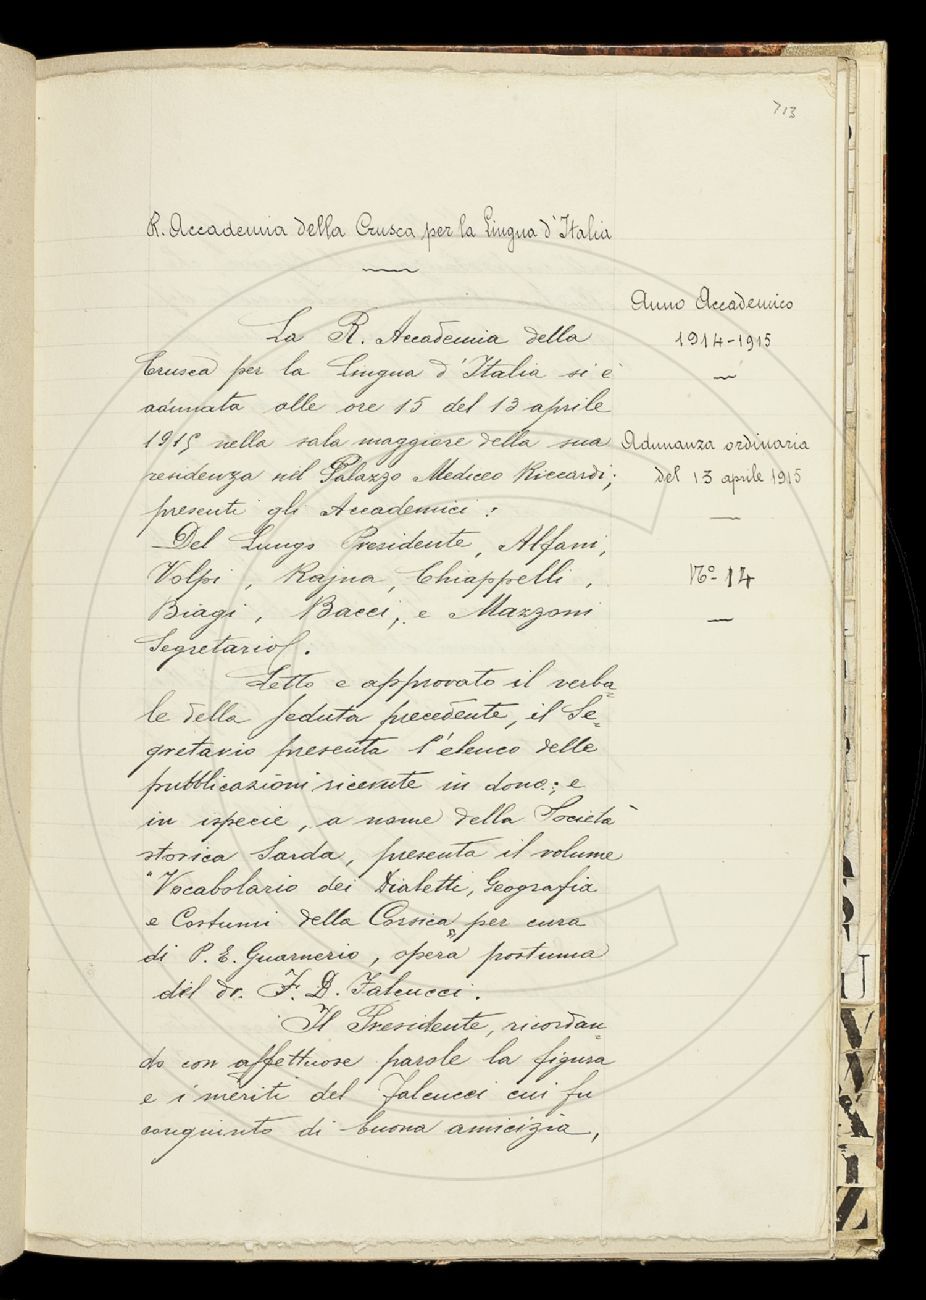 713
R. Accademia della Crusca per la Lingua d'Italia
Anno Accademico
1914-1915
Adunanza ordinaria
del 13 aprile 1915
No. 14
La R. Accademia della
Crusca per la Lingua d'Italia si è
adunata alle ore 15 del 13 aprile
1915 nella sala maggiore della sua
residenza nel Palazzo Mediceo Riccardi;
presenti gli Accademici:
Del Lungo Presidente, Alfani,
Volpi, Rajna, Chiappelli,
Biagi, Bacci, e Mazzoni
Segretario.
Letto e approvato il verba=
le della seduta precedente, il Se=
gretario presenta l'elenco delle
pubblicazioni ricevute in dono; e
in ispecie, a nome della Società
storica Sarda, presenta il volume
"Vocabolario dei Dialetti, Geografia
e Costumi della Corsica" per cura
di P. E. Guarnerio, opera postuma
del dr. F. D. Falcucci.
Il Presidente, ricordan=
do con affettuose parole la figura
e i meriti del Falcucci cui fu
congiunto di buona amicizia,